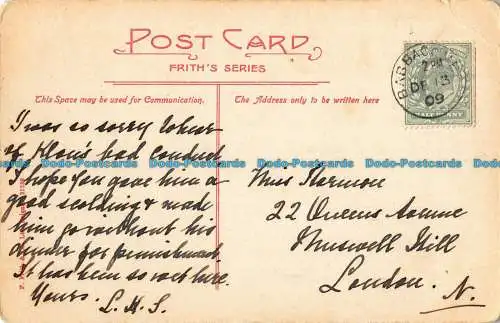 POST CARD
FRITH'S SERIES
This Space may be used for Communication.
The Address only to be written here
2 PM
DE 13
09
HALFPENNY
I was so sorry to hear
of bad conduct
I hope you gave him a
good scolding & made
him go without his
dinner for punishment.
It has been so wet here.
Yours.
L.H.S.
Miss
22 Queens Avenue
Muswell Hill
London.
N.
Dodo-Postcards Dodo-Postcards Dodo-Postcards Dodo-Postcards